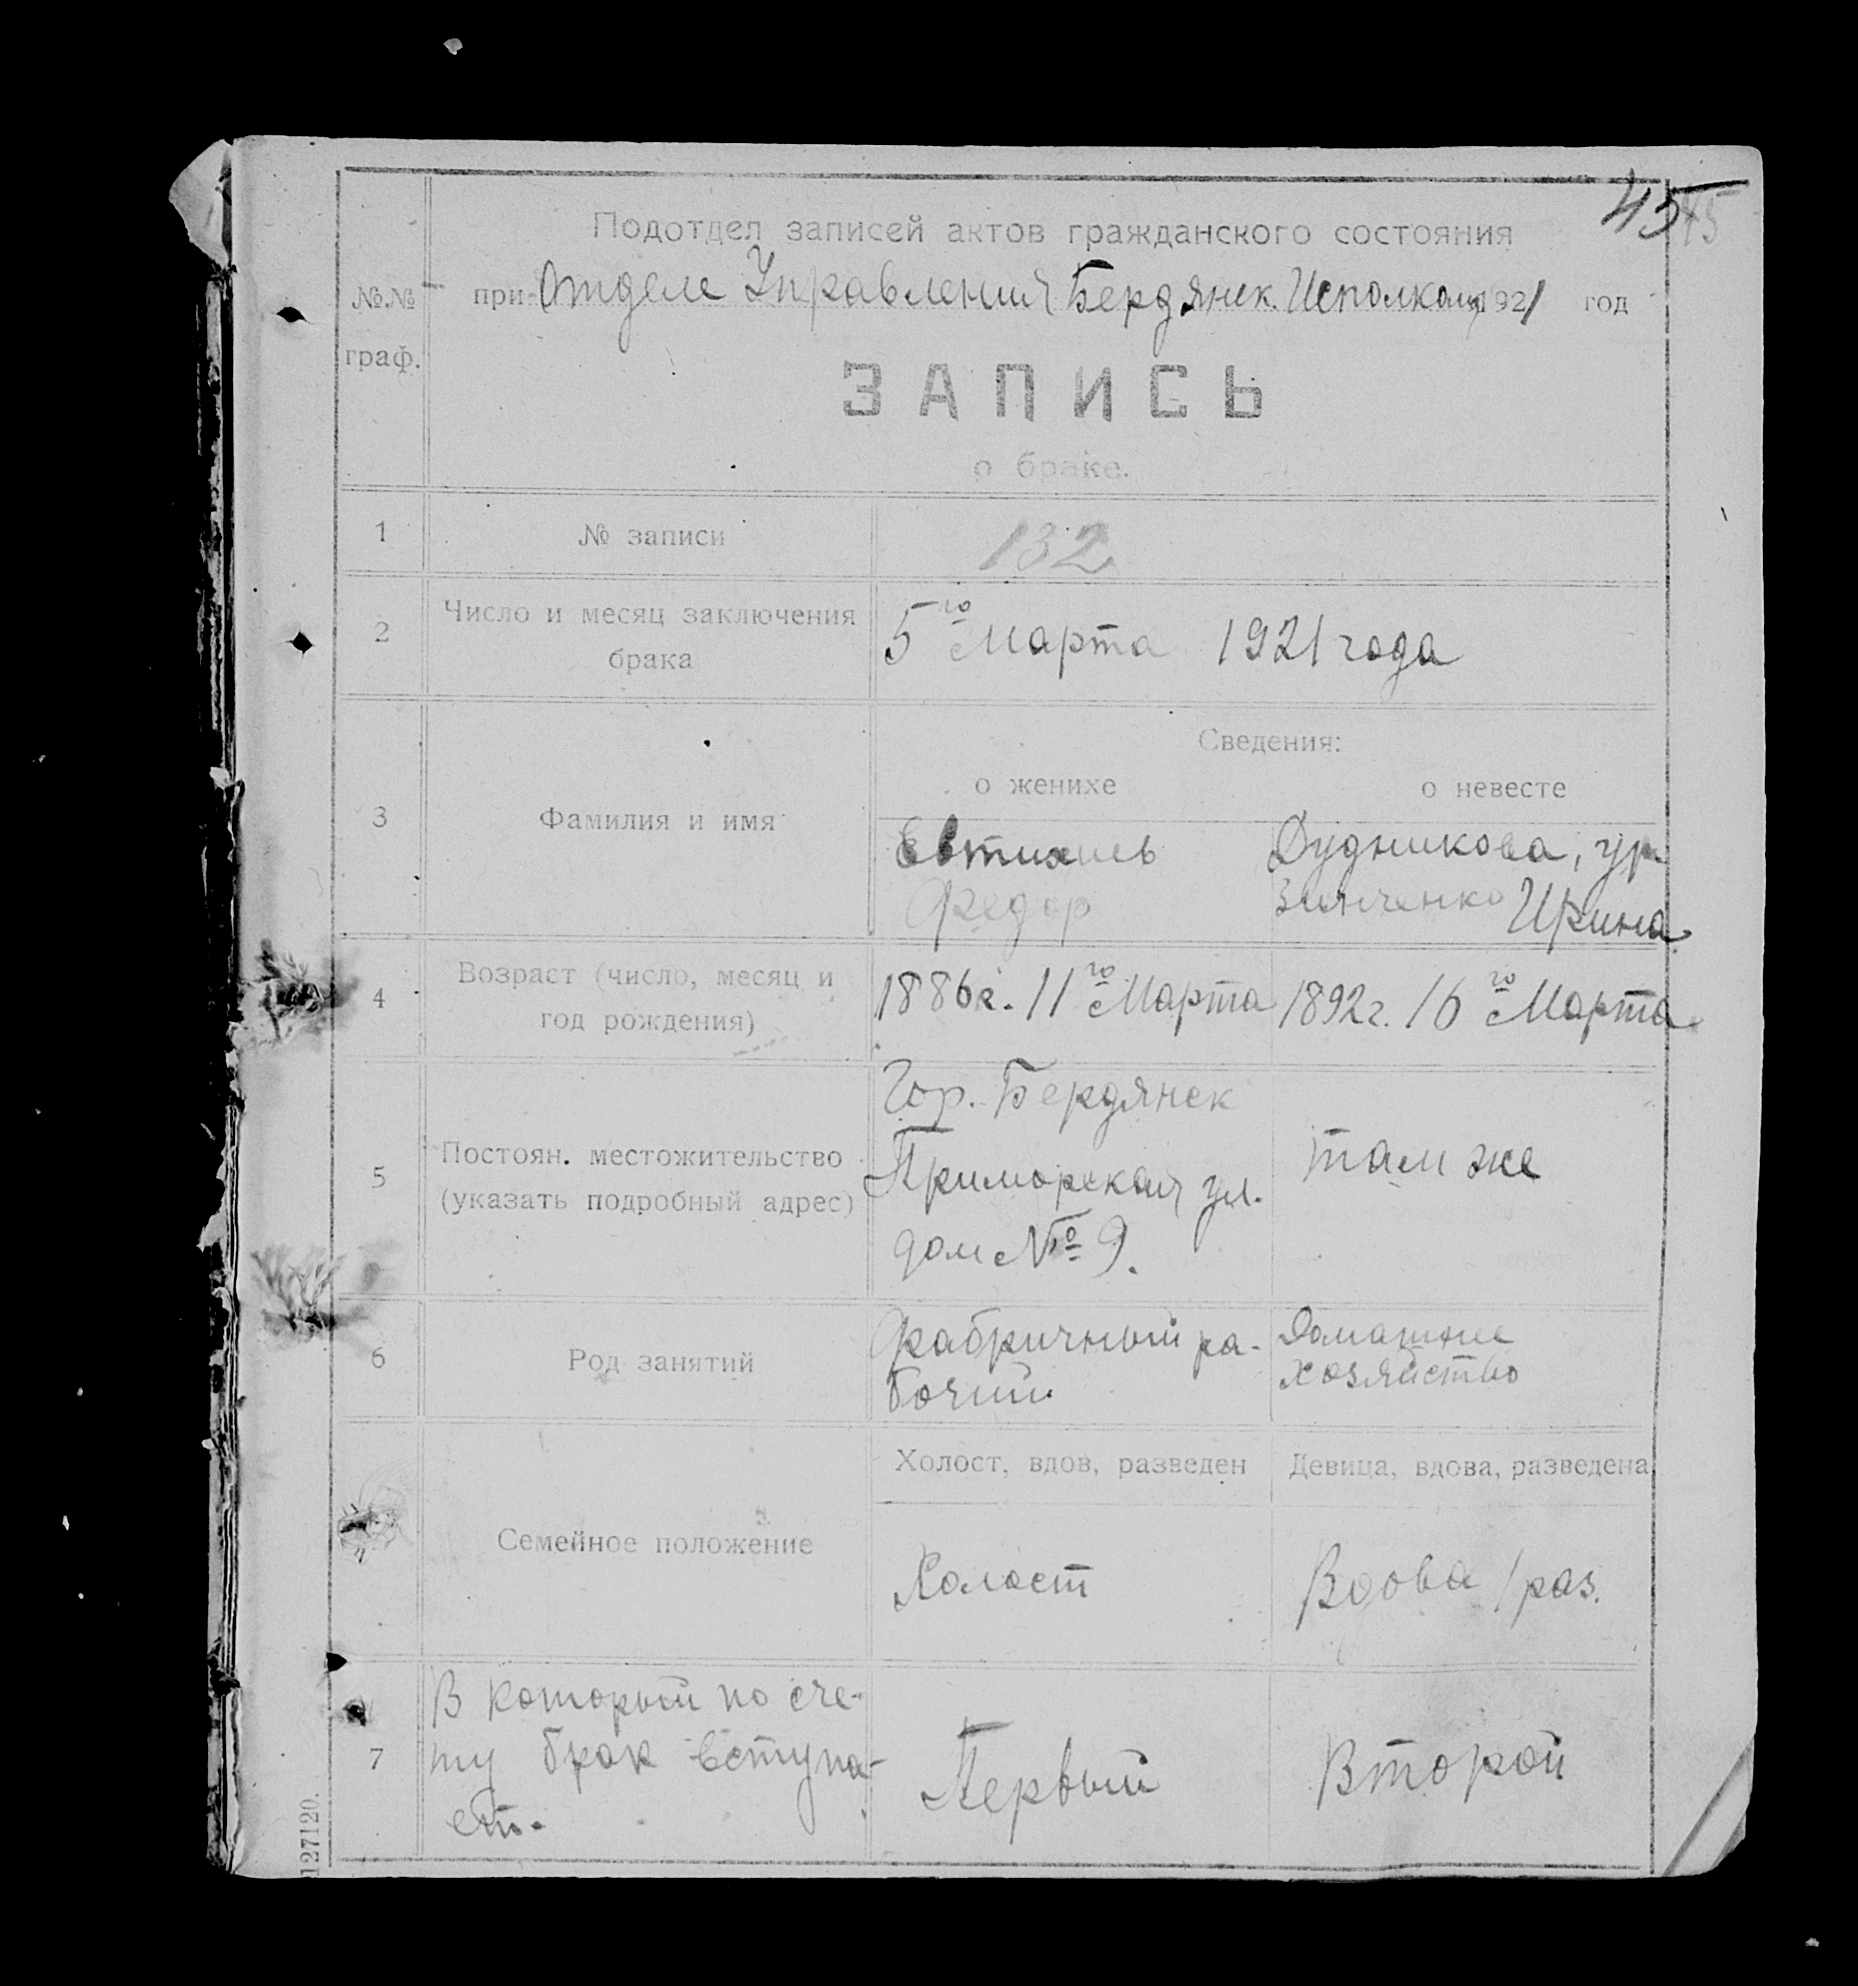 45 45
Подотдел записей актов гражданского состояния
№.№ при Отделе Управления Бердянск. Исполкома 1921 год
граф.
ЗАПИСЬ
о браке.
1 № записи 132
2 Число и месяц заключения брака 5го Марта 1921 года
Сведения:
о женихе о невесте
3 Фамилия и имя
Евтихиев Дудникова, ур.
Федор Зинченко Ирина
4 Возраст (число, месяц и год рождения) 1886г. 11го Марта 1892г. 16го Марта
5 Постоян. местожительство (указать подробный адрес)
Гор. Бердянск
Приморская ул.
дом № 9.
там же
6 Род занятий
Фабричный ра-
бочий.
Домашнее
хозяйство
Семейное положение
Холост, вдов, разведен Девица, вдова, разведена
Холост Вдова 1 раз.
7 В который по сче-
ту брак вступа-
ет.
Первый Второй
127120.